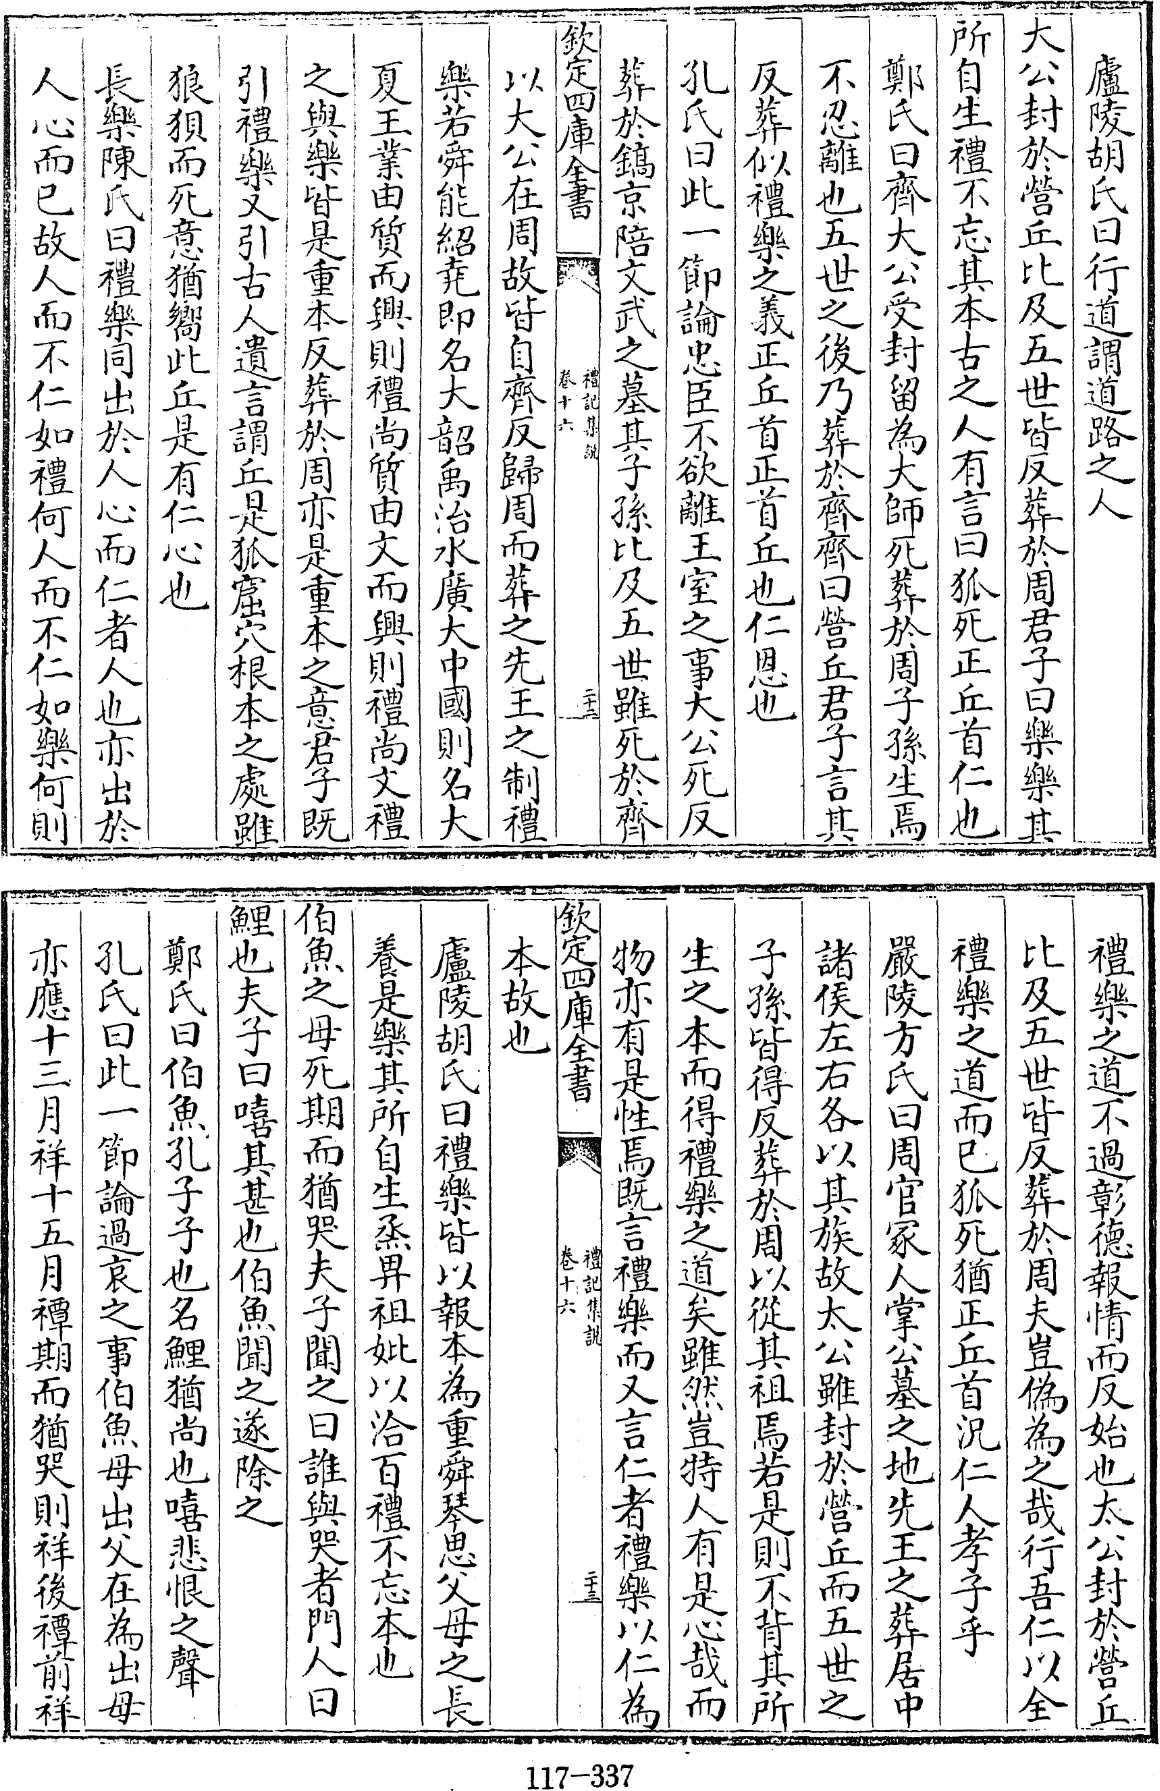 廬陵胡氏曰行道謂道路之人
大公封於營丘比及五世皆反葬於周君子曰樂樂其
所自生禮不忘其本古之人有言曰狐死正丘首仁也
鄭氏曰齊大公受封留為大師死葬於周子孫生焉
不忍離也五世之後乃葬於齊齊曰營丘君子言其
反葬似禮樂之義正丘首正首丘也仁恩也
孔氏曰此一節論忠臣不欲離王室之事大公死反
葬於鎬京陪文武之墓其子孫比及五世雖死於齊
欽定四庫全書
禮記集說
卷十六
二十三
以大公在周故皆自齊反歸周而葬之先王之制禮
樂若舜能紹堯即名大韶禹治水廣大中國則名大
夏王業由質而興則禮尚質由文而興則禮尚文禮
之與樂皆是重本反葬於周亦是重本之意君子既
引禮樂又引古人遺言謂丘是狐窟穴根本之處雖
狼狽而死意猶嚮此丘是有仁心也
長樂陳氏曰禮樂同出於人心而仁者人也亦出於
人心而已故人而不仁如禮何人而不仁如樂何則
禮樂之道不過彰德報情而反始也太公封於營丘
比及五世皆反葬於周夫豈偽為之哉行吾仁以全
禮樂之道而已狐死猶正丘首況仁人孝子乎
嚴陵方氏曰周官冢人掌公墓之地先王之葬居中
諸侯左右各以其族故太公雖封於營丘而五世之
子孫皆得反葬於周以從其祖焉若是則不背其所
生之本而得禮樂之道矣雖然豈特人有是心哉而
物亦有是性焉既言禮樂而又言仁者禮樂以仁為
欽定四庫全書
禮記集說
卷十六
二十三
本故也
廬陵胡氏曰禮樂皆以報本為重舜琴思父母之長
養是樂其所自生烝畀祖妣以洽百禮不忘本也
伯魚之母死期而猶哭夫子聞之曰誰與哭者門人曰
鯉也夫子曰嘻其甚也伯魚聞之遂除之
鄭氏曰伯魚孔子子也名鯉猶尚也嘻悲恨之聲
孔氏曰此一節論過哀之事伯魚母出父在為出母
亦應十三月祥十五月禫期而猶哭則祥後禫前祥
117-337